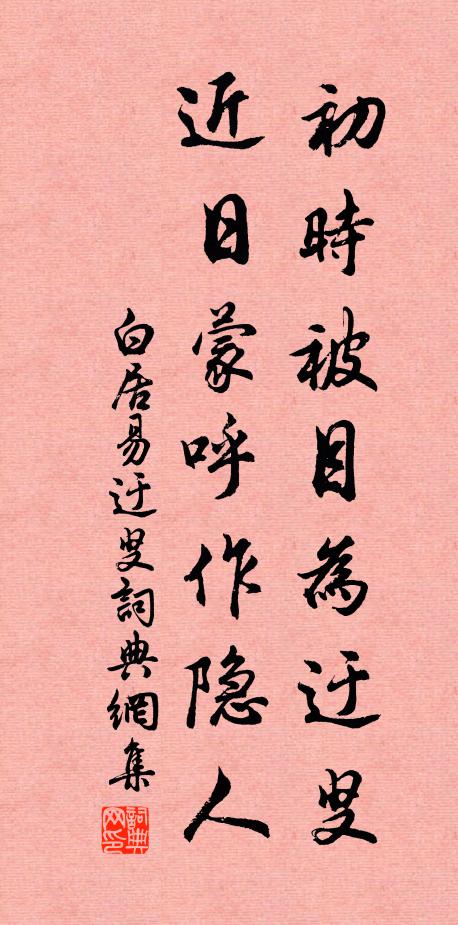 初時被目為迂叟
近日蒙呼作隐人
白居易迂叟詞典網集
詞典网印